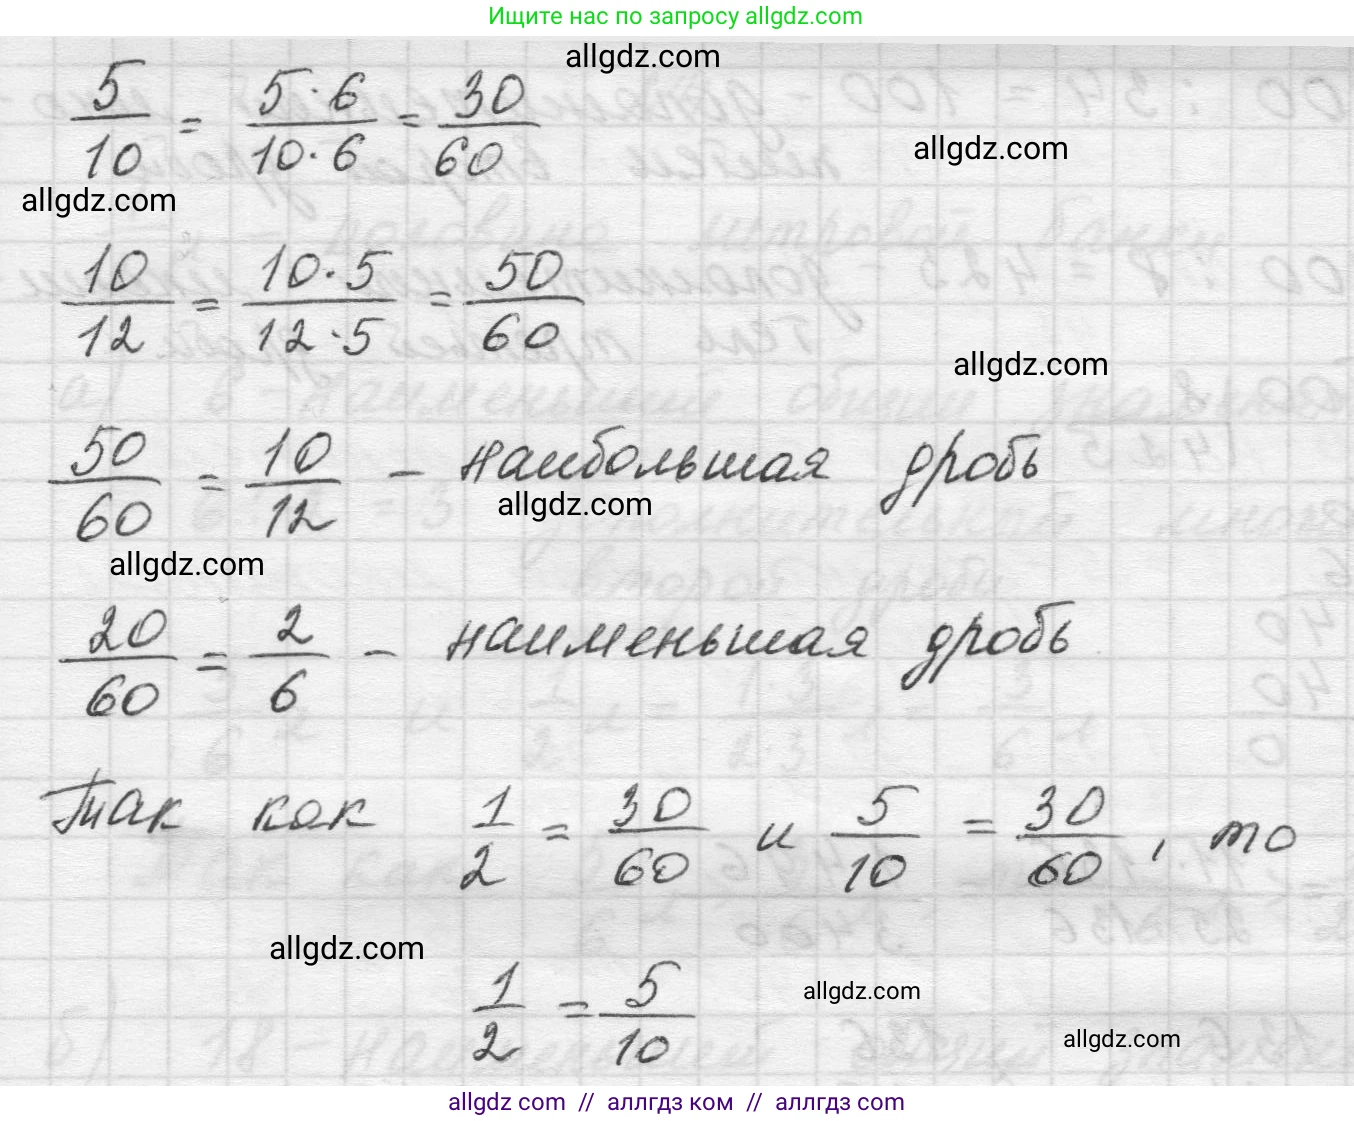 Ищите нас по запросу allgdz.com
allgdz.com
5/10 = 5·6/10·6 = 30/60
allgdz.com
allgdz.com
10/12 = 10·5/12·5 = 50/60
allgdz.com
50/60 = 10/12 – наибольшая дробь
allgdz.com
allgdz.com
20/60 = 2/6 – наименьшая дробь
Так как 1/2 = 30/60 и 5/10 = 30/60, то
allgdz.com
1/2 = 5/10
allgdz.com
allgdz.com
allgdz com // аллгдз ком // аллгдз com